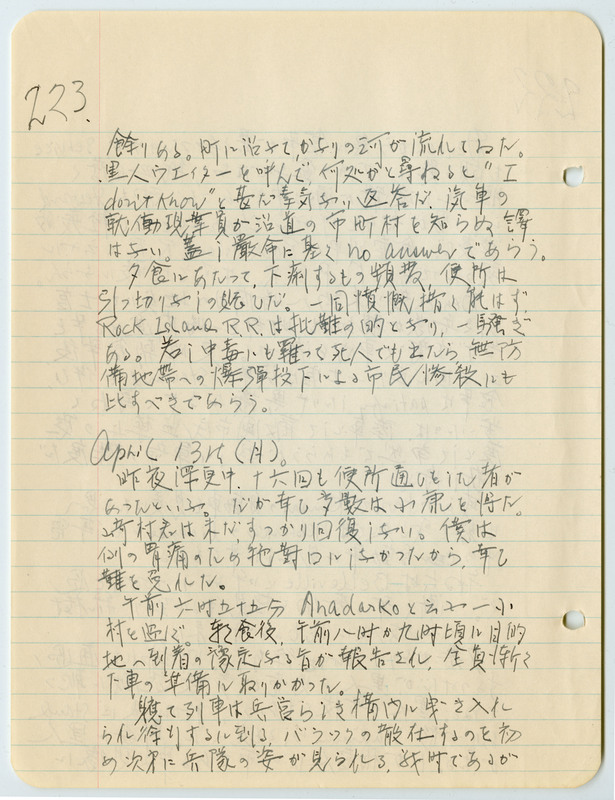 223.
餘りある。町に沿ふて、かなりの河が流れてゐた。
黒人ウエイターを呼んで、何処かと尋ねると "I
don't know" と甚だ素気ない返答だ。汽車の
軌働現業員が沿道の市町村を知らぬ譯
はない。蓋し嚴命に基く no answer であらう。
夕食にあたって、下痢するもの頻發、便所は
引っ切りなしの始しだ。一同憤慨措く能はず
Rock Island R.R. は批難の的となり、一騒ぎ
ある。若し中毒にも罹って死人でも出たら、無防
備地帯への爆弾投下による市民惨殺にも
比すべきであらう。
April 13th (月)。
昨夜深更中、十六回も便所通ひをした者が
あったといふ。だが幸し多数は小康を得た。
村君は未だすっかり回復しない。僕は
例の胃痛のため絶対口にしなかったから、幸し
難を免れた。
午前六時五十五分 Anadarko と云ふ一小
村を過ぐ。朝食後、午前八時か九時頃に目的
地へ到着の豫定なる旨が報告され、全員漸く
下車の準備に取りかかった。
軈て列車は兵営らしき構内に曳き入れ
られ徐行するに到る。バラックの散在するのを初
め次第に兵隊の姿が見られる。戦時であるが